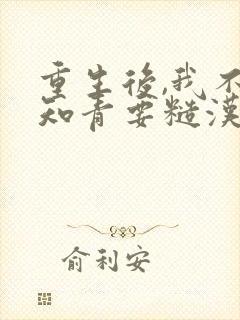 重生後,我不
知青要糙漢
俞利安